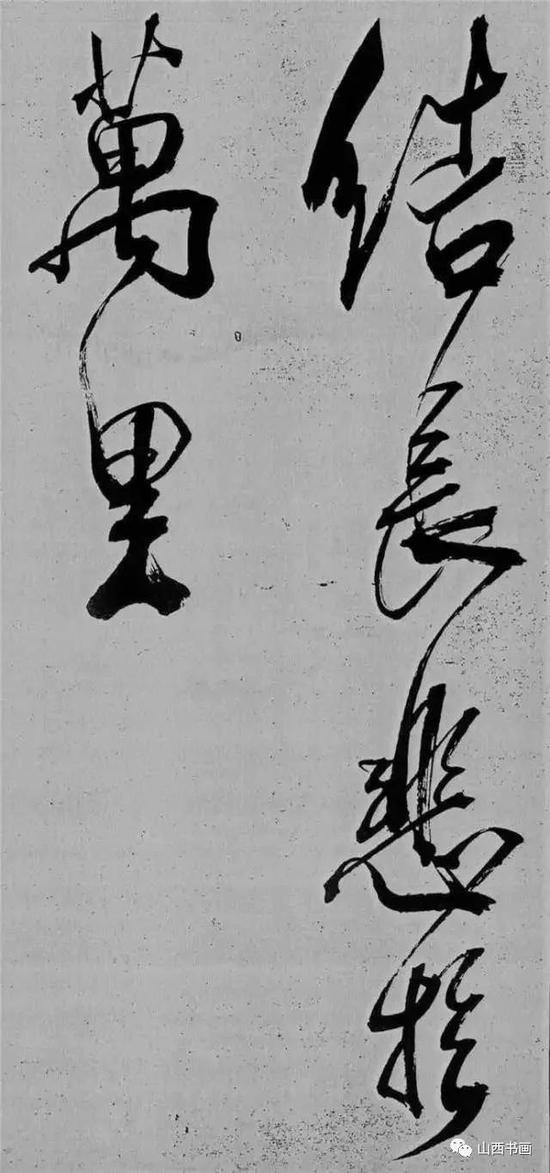 結長悲於
萬里
山西书画